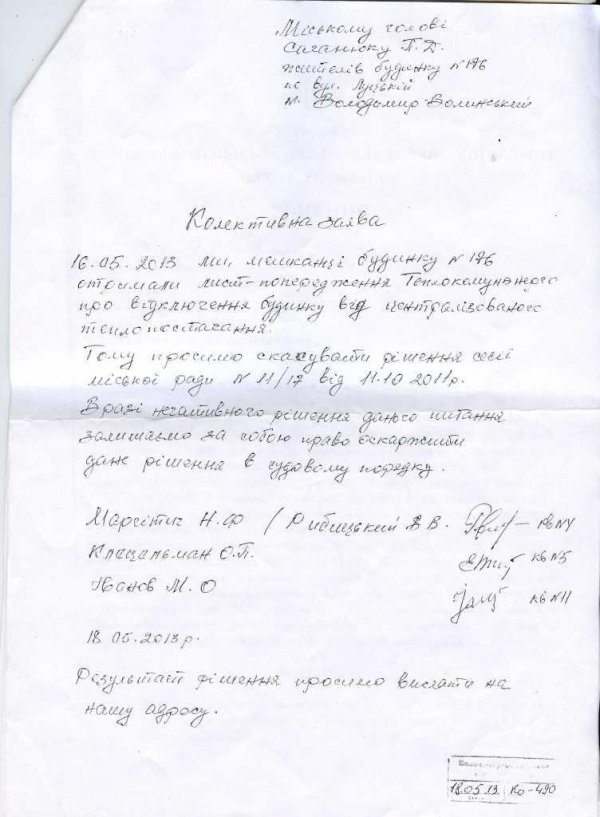 Міському голові
Саганюку П. Д.
жителів будинку N 186
по вул. Луцькій
м. Володимир Волинський
Колективна заява
16.05.2013 ми, мешканці будинку N 186
отримали лист-попередження Теплокомуненерго
про відключення будинку від централізованого
теплопостачання.
Тому просимо скасувати рішення сесії
міської ради N 11/17 від 11.10 2011р.
Вразі негативного рішення даного питання
залишаємо за собою право оскаржити
дане рішення в судовому порядку.
Маргітич Н. Ф / Рибицький В В. кв N4
О. П. кв N5
Іванов М. О кв N11
18 05.2013 р.
Результат рішення просимо вислати на
нашу адресу.
18.05.13. Ко-490